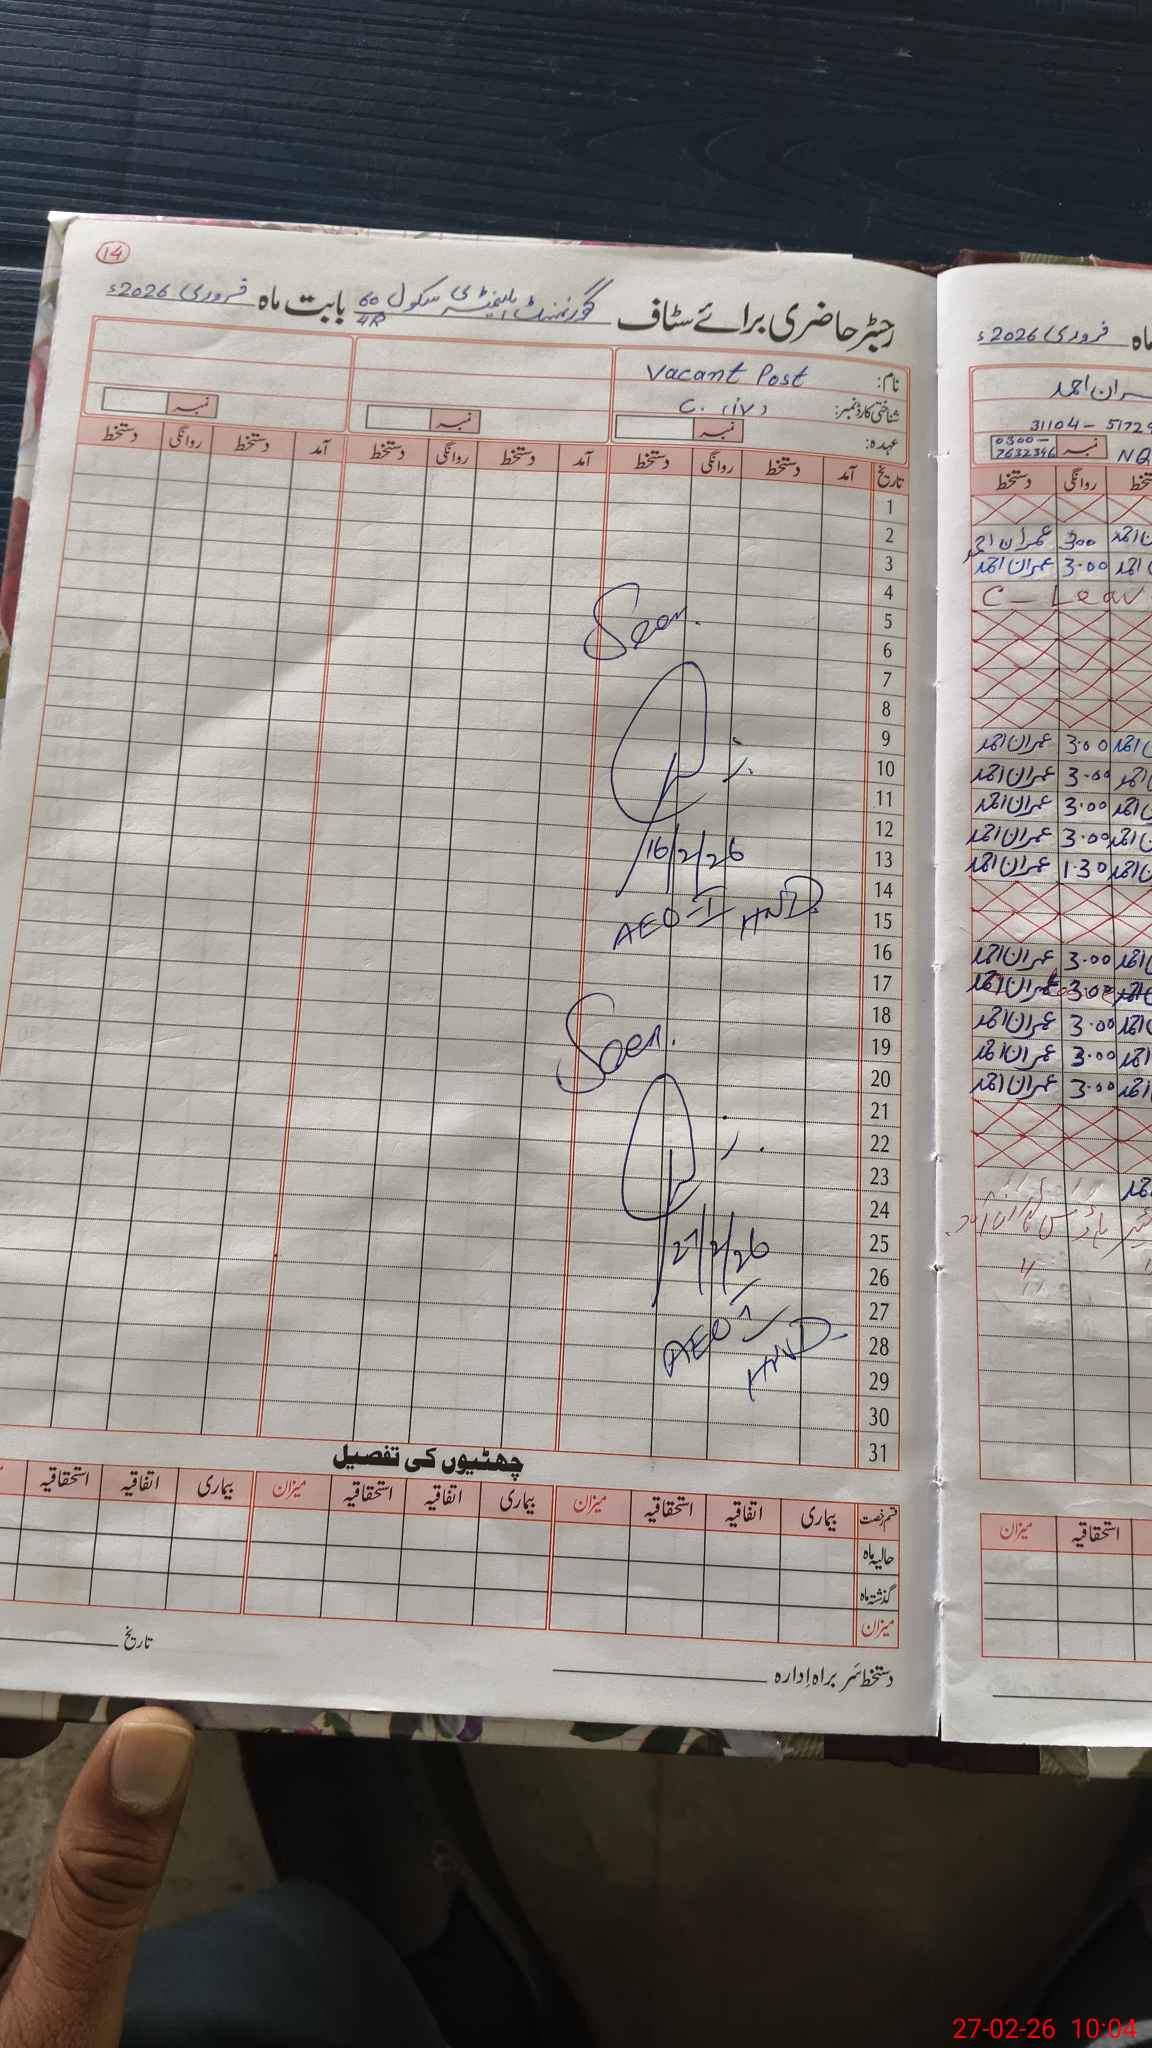 14
رجسٹر حاضری برائے سٹاف گورنمنٹ ایلیمنٹری سکول 60/4R بابت ماہ فروری 2026ء
نام: Vacant Post
شناختی کارڈ نمبر: C. (iv)
عہدہ:
نمبر نمبر نمبر
تاریخ آمد دستخط روانگی دستخط آمد دستخط روانگی دستخط آمد دستخط روانگی دستخط
1
2
3
4
5
6
7
8
9
10
11
12
13
14
15
16
17
18
19
20
21
22
23
24
25
26
27
28
29
30
31
Seen.
16/2/26
AEO-I HND.
Seen.
27/2/26
AEO-I
HND.
چھٹیوں کی تفصیل
قسم رخصت بیماری اتفاقیہ استحقاقیہ میزان بیماری اتفاقیہ استحقاقیہ میزان بیماری اتفاقیہ استحقاقیہ
حالیہ ماہ
گذشتہ ماہ
میزان
دستخط سربراہ اِدارہ
تاریخ
ماہ فروری 2026ء
عمران احمد
31104-5172
نمبر 0300-7632346
NQ
دستخط روانگی
عمران احمد 3.00
عمران احمد 3.00
C-Leav
عمران احمد 3.00
عمران احمد 3.00
عمران احمد 3.00
عمران احمد 3.00
عمران احمد 1.30
عمران احمد 3.00
عمران احمد 3.00
عمران احمد 3.00
عمران احمد 3.00
عمران احمد 3.00
استحقاقیہ میزان
27-02-26 10:04